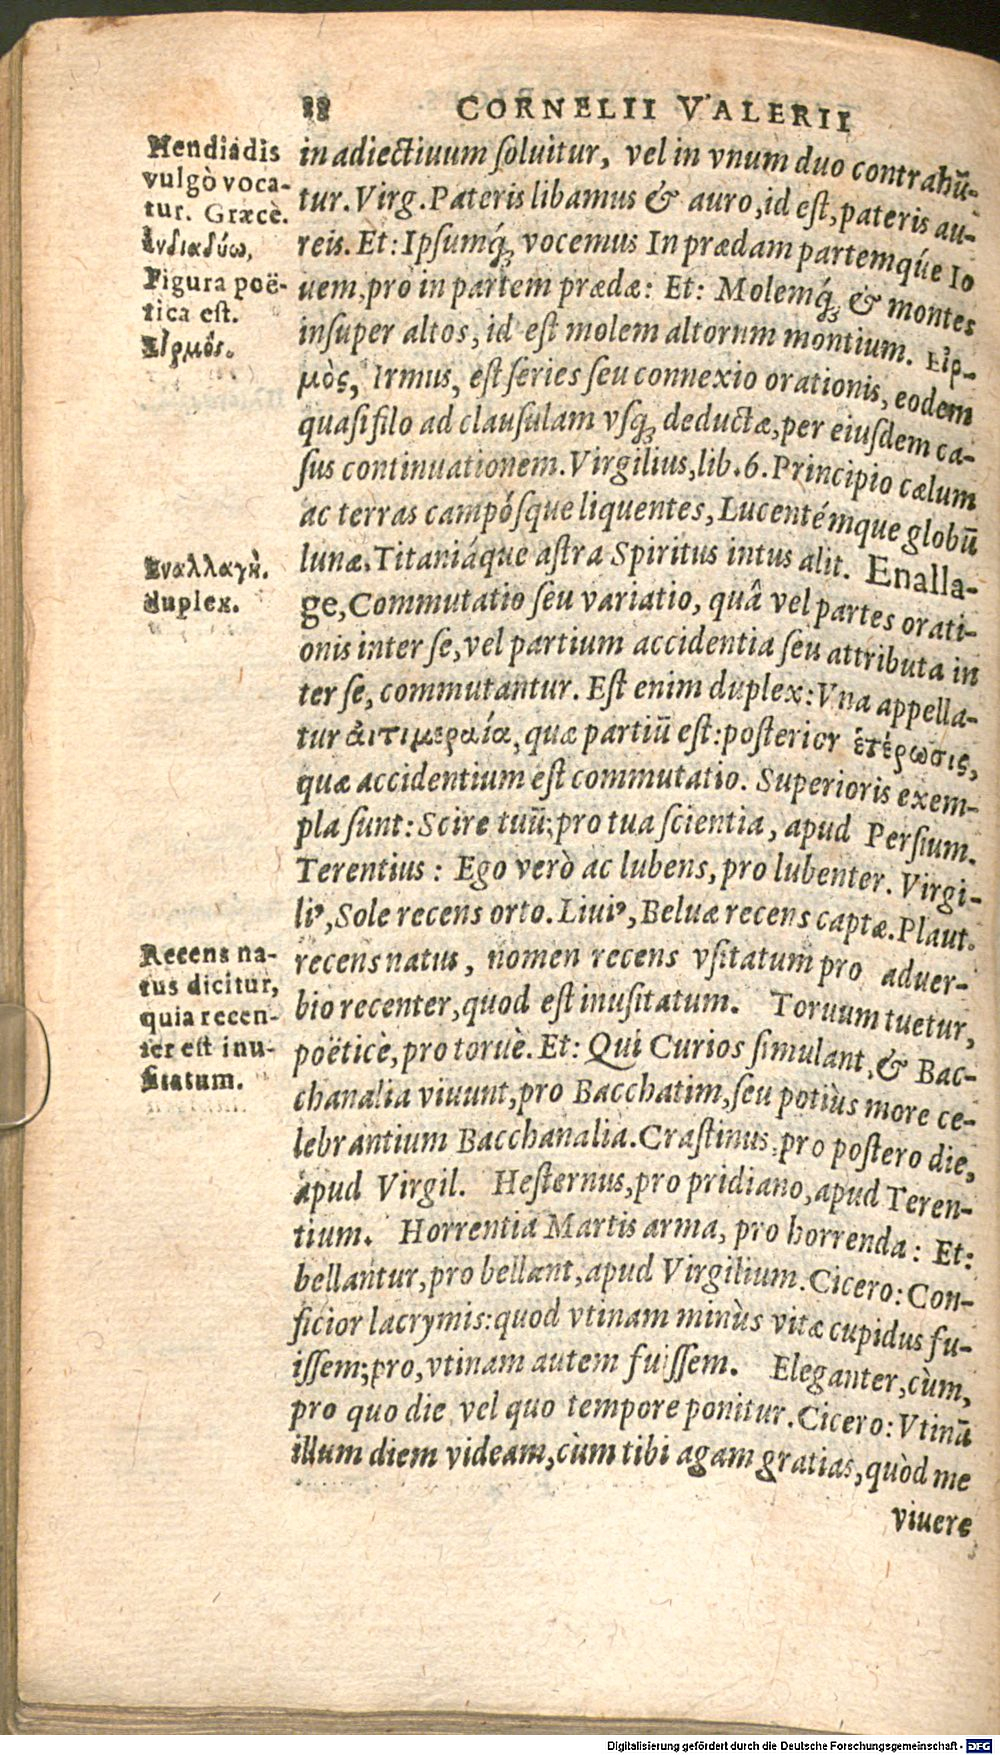 88 CORNELII VALERII
Hendiadis
vulgò voca-
tur. Græcè.
ἓνδιαδύω,
Figura poë-
tica est.
Εἱρμός.
in adiectiuum soluitur, vel in vnum duo contrahũ-
tur. Virg. Pateris libamus & auro, id est, pateris au-
reis. Et: Ipsumq́; vocemus In prædam partemq́ue Io
uem, pro in partem prædæ: Et: Molemq́; & montes
insuper altos, id est molem altorum montium. Εἱρ-
μὸς, Irmus, est series seu connexio orationis, eodem
quasi filo ad clausulam vsq; deductæ, per eiusdem ca-
sus continuationem. Virgilius, lib. 6. Principio cælum
ac terras campósque liquentes, Lucentémque globũ
lunæ, Titaniáque astra Spiritus intus alit. Enalla-
ge, Commutatio seu variatio, quâ vel partes orati-
onis inter se, vel partium accidentia seu attributa in
ter se, commutantur. Est enim duplex: Vna appella-
tur ἀντιμερεία, quæ partiũ est: posterior ἑτέρωσις,
quæ accidentium est commutatio. Superioris exem-
pla sunt: Scire tuũ; pro tua scientia, apud Persium.
Terentius: Ego verò ac lubens, pro lubenter. Virgi-
liꝰ, Sole recens orto. Liuiꝰ, Beluæ recens captæ. Plaut.
recens natus, nomen recens vsitatum pro aduer-
bio recenter, quod est inusitatum. Toruum tuetur,
poëticè, pro toruè. Et: Qui Curios simulant, & Bac-
chanalia viuunt, pro Bacchatim, seu potiùs more ce-
lebrantium Bacchanalia. Crastinus, pro postero die,
apud Virgil. Hesternus, pro pridiano, apud Teren-
tium. Horrentia Martis arma, pro horrenda: Et:
bellantur, pro bellant, apud Virgilium. Cicero: Con-
ficior lacrymis: quod vtinam minùs vitæ cupidus fu-
issem; pro, vtinam autem fuissem. Eleganter, cùm,
pro quo die vel quo tempore ponitur. Cicero: Vtinã
illum diem videam, cùm tibi agam gratias, quòd me
viuere
Εναλλαγὴ.
duplex.
Recens na-
tus dicitur,
quia recen-
ter est inu-
sitatum.
Digitalisierung gefördert durch die Deutsche Forschungsgemeinschaft - DFG